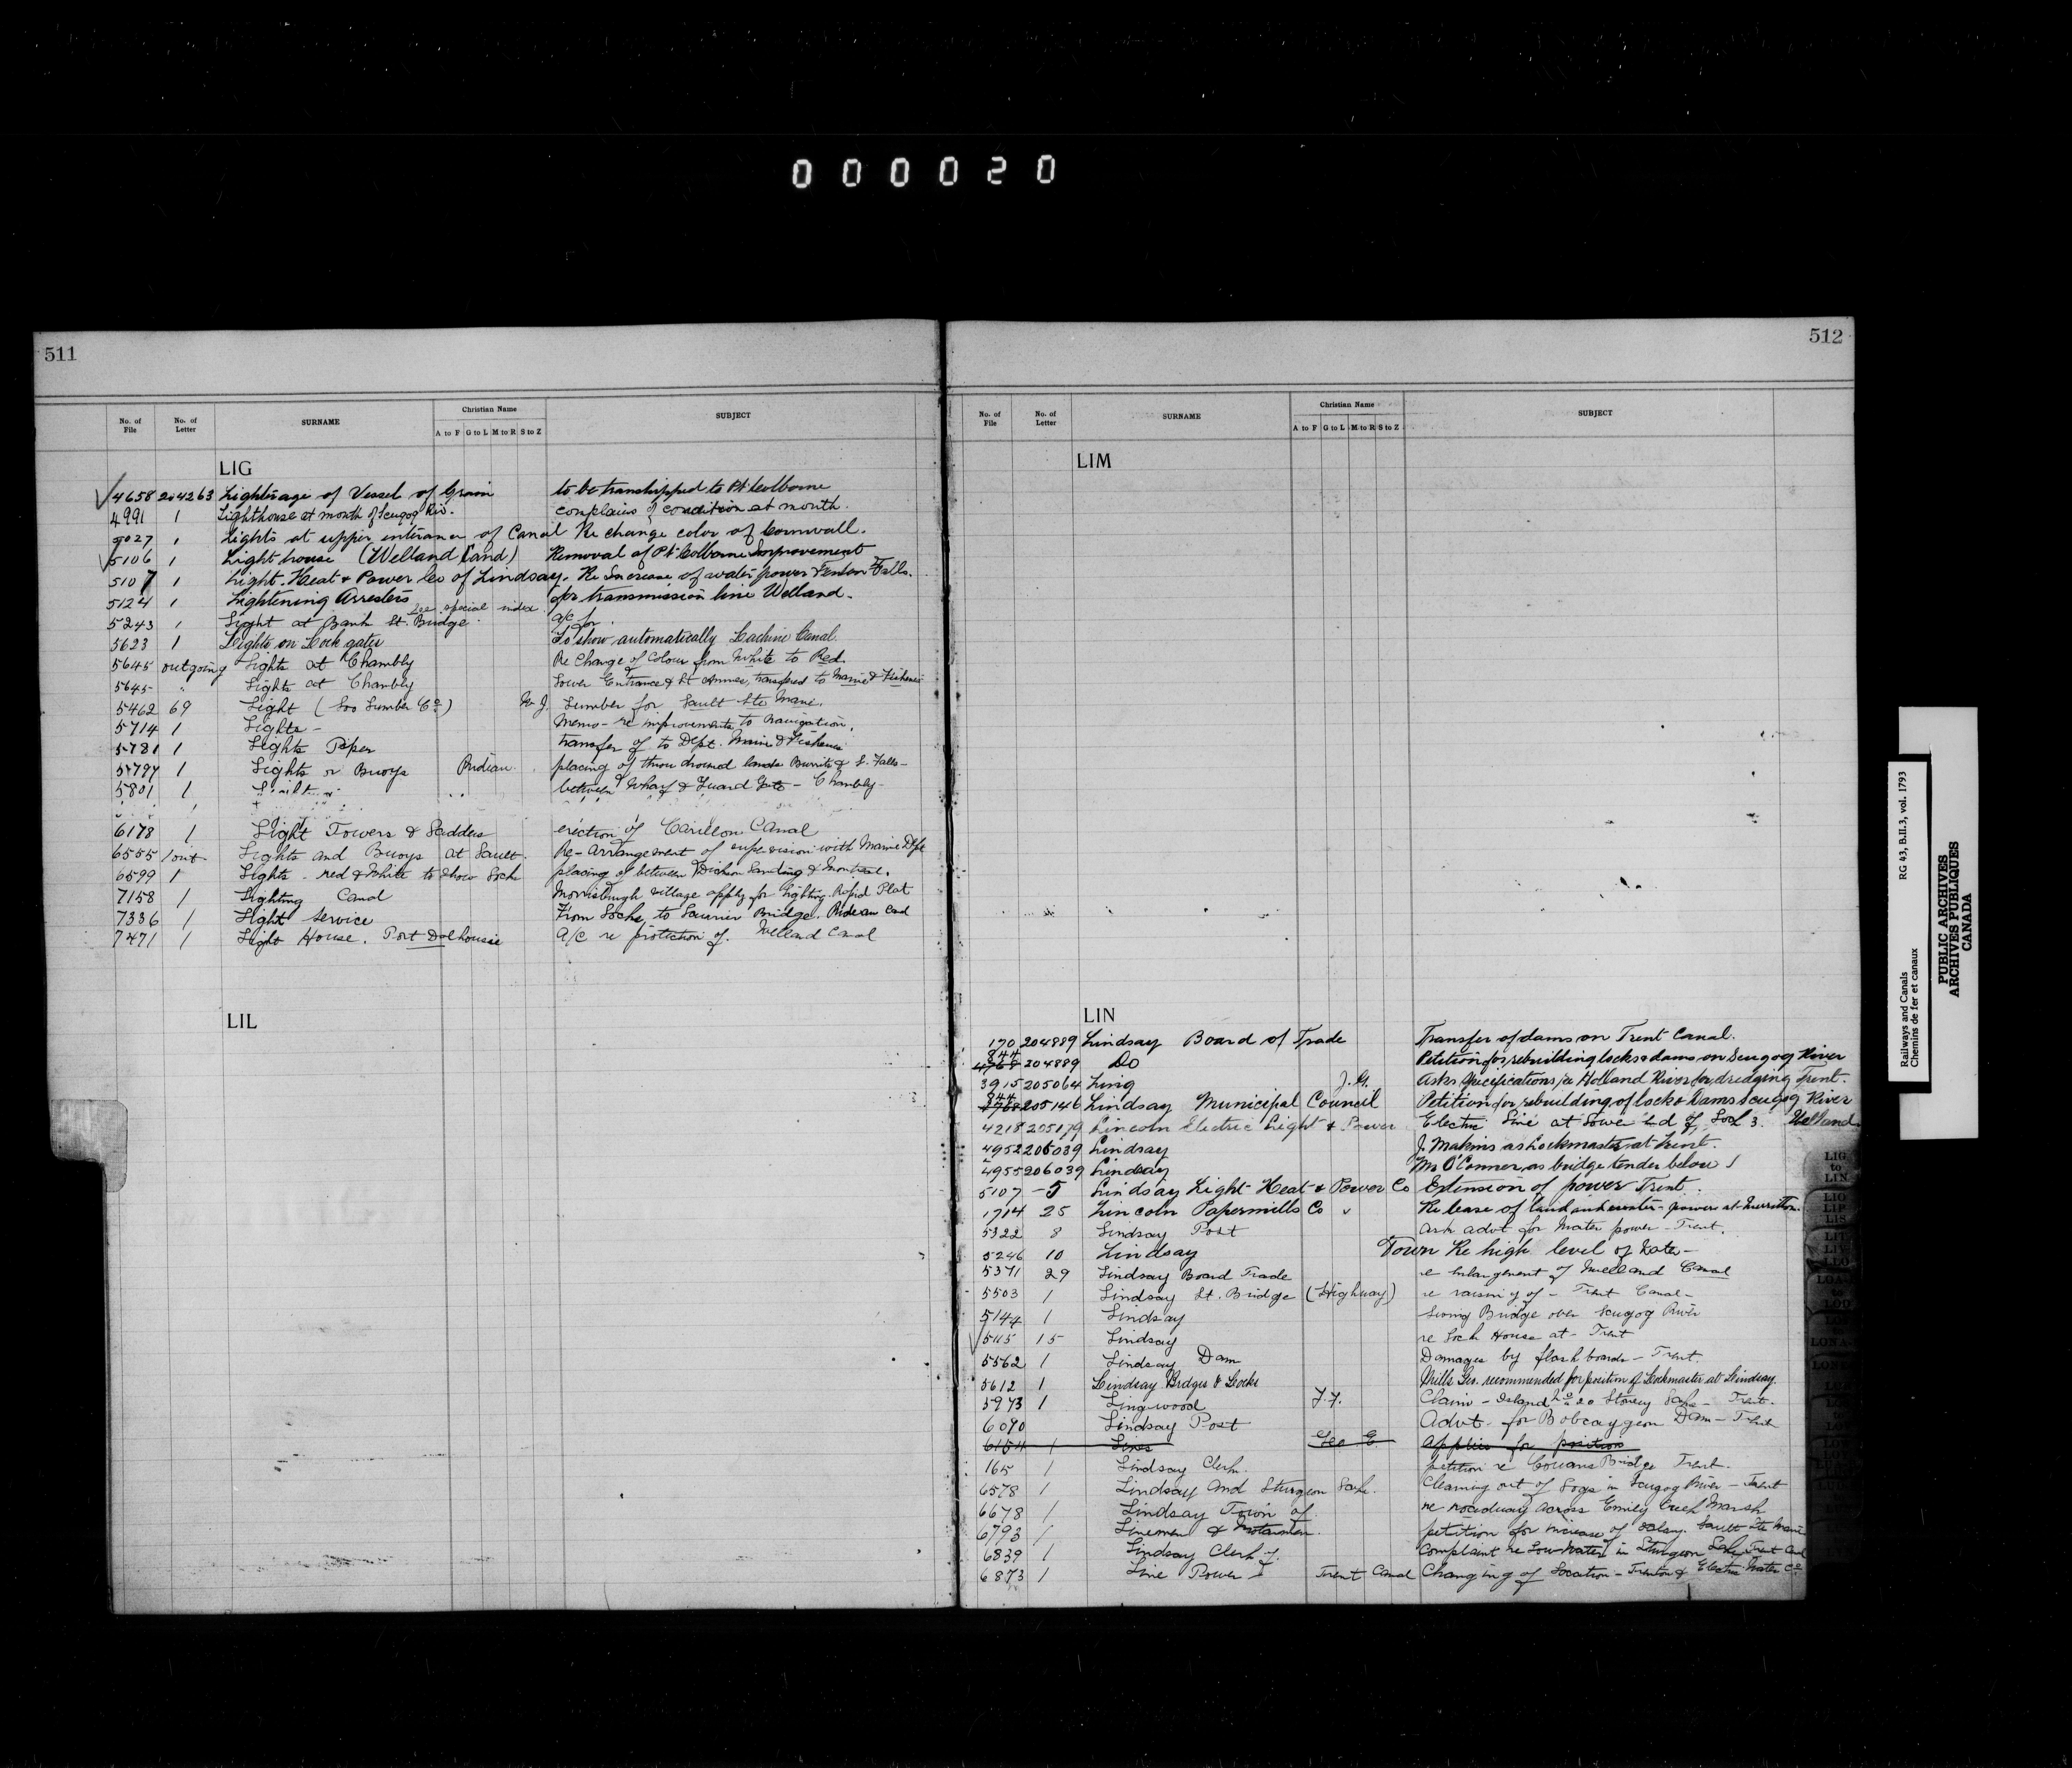 000020
511
No. of File | No. of Letter | SURNAME | Christian Name | SUBJECT
A to F | G to L | M to R | S to Z
LIG
4658 204263 Lightrage of Vessel of Grain to be transhipped to Pt Colborne
4991 1 Lighthouse at mouth of Scugog Riv. complains of condition at mouth.
5027 1 Lights at upper entrance of Canal Re change color of Cornwall.
5106 1 Light house (Welland Canal) Removal of Pt Colborne Improvement
5107 1 Light. Heat & Power Co of Lindsay. Re Increase of water power Fenlon Falls.
5124 1 Lightening Arresters for transmission line Welland.
See special index
5243 1 Light at Bank St. Bridge. a/c for.
5623 1 Lights on Lock gates To show automatically Lachine Canal.
5645 outgoing Lights at Chambly Re Change of Colour from White to Red.
5645 " Lights at Chambly Lower Entrance & St Annes, transfered to Marine & Fisheries
5462 69 Light (Soo Lumber Co) W. J. Lumber for Sault Ste Marie.
5714 1 Lights - Memo - re improvements to navigation.
5781 1 Lights Piper transfer of to Dept. Marine & Fisheries
5797 1 Lights or Buoys Rideau. placing of Burritts & S. Falls -
5801 1 between Wharf & Guard Gate - Chambly
6178 1 Light Towers & Ladders erection of Carillon Canal
6555 1 out Lights and Buoys at Sault. Re-arrangement of supervision with Marine Dept
6599 1 Lights - red & White to show Locks placing of between Dickson Landing & Montreal.
7158 1 Lighting Canal Morrisburgh village apply for lighting Rapid Plat
7336 1 Light Service From Locks to Laurier Bridge. Rideau Canal
7471 1 Light House. Port Dalhousie a/c re protection of. Welland Canal
LIL
512
No. of File | No. of Letter | SURNAME | Christian Name | SUBJECT
A to F | G to L | M to R | S to Z
LIM
LIN
170 204889 Lindsay Board of Trade Transfer of dams on Trent Canal.
844
4768 204889 Do Petition for rebuilding locks & dams on Scugog River
3915 205064 Ling J. G. Asks Specifications re Holland River for dredging Trent.
844
4768 205146 Lindsay Municipal Council Petition for rebuilding of lock & Dams Scugog River
4218 205179 Lincoln Electric Light & Power Electric Line at Lower End of Lock 3. Welland
4952 206039 Lindsay J. Makins as Lockmaster at Trent.
4955 206039 Lindsay Mr O'Conner, as bridge tender below
5107 - 5 Lindsay Light Heat & Power Co Extension of power Trent.
1714 25 Lincoln Papermills Co Release of land and water-power at Merritton.
5322 8 Lindsay Post Ask advt for Water power - Trent.
5246 10 Lindsay Town Re high level of Water -
5371 29 Lindsay Board Trade re Enlargement of Welland Canal
5503 1 Lindsay St. Bridge (Highway) re raising of - Trent Canal -
5144 1 Lindsay Swing Bridge over Scugog River
5115 15 Lindsay re Lock House at - Trent
5562 1 Lindsay Dam Damages by flash boards - Trent.
5612 1 Lindsay Bridges & Locks Mills Geo. recommended for position of Lockmaster at Lindsay.
5973 1 Lingwood F. F. Claim - Island No 20 Stoney Lake - Trent.
6090 Lindsay Post Advt. for Bobcaygeon Dam - Trent
6154 1 Lines Geo E Applies for position
165 1 Lindsay Clerk. petition re Cowans Bridge Trent.
6578 1 Lindsay and Sturgeon Lake. Cleaning out of Logs in Scugog River - Trent
6678 1 Lindsay Town of re roadway across Emily Creek Marsh
6793 1 Linemen & Motormen. petition for increase of salary. Sault Ste Marie
6839 1 Lindsay Clerk of. Complaint re Low Water in Sturgeon Lake Trent Canal
6873 1 Line Power Trent Canal Changing of Location - Trenton Electric & Water Co.
LIG to LIN
LIO
LIP
LIS
Railways and Canals RG 43, B.II.3, vol. 1793
Chemins de fer et canaux
PUBLIC ARCHIVES
ARCHIVES PUBLIQUES
CANADA